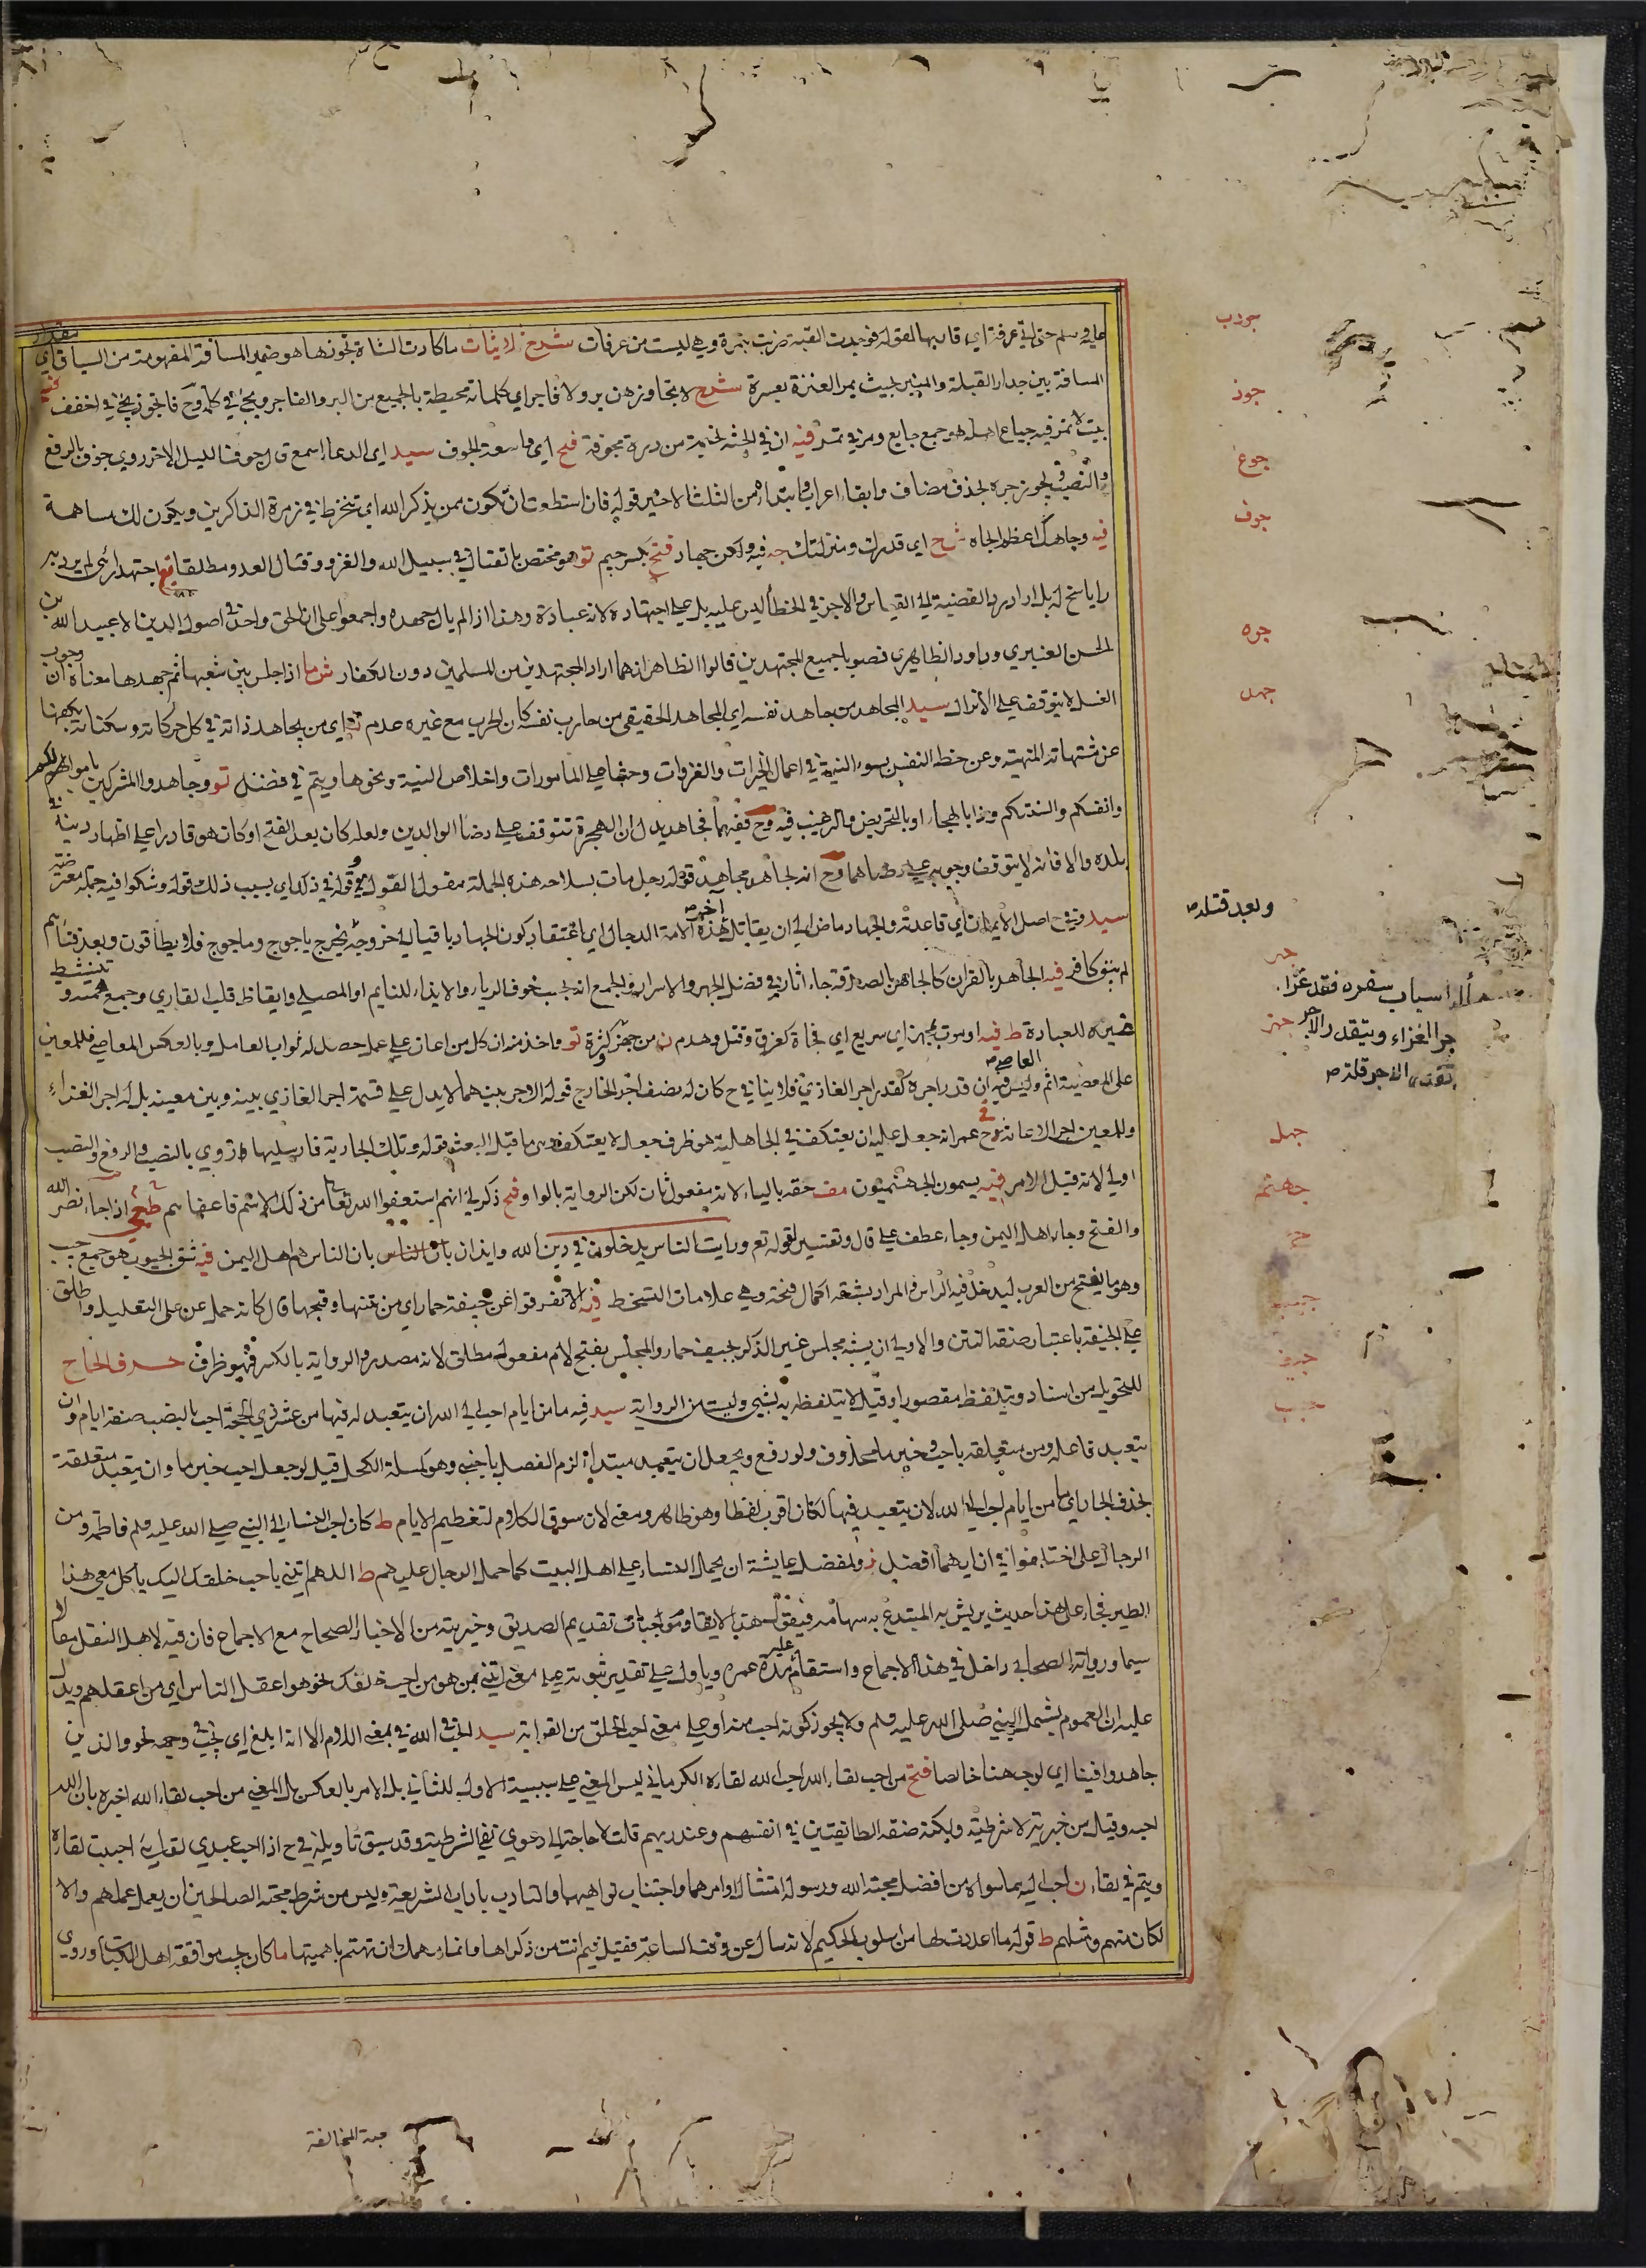 عليه وسلم حتى اتى عرفة اي قاربها لقوله فوجدت القبة ضربت بنمرة وهي ليست من عرفات شرح ثلاثيات ما كادت الشاة تجوزها هو ضمير المسافة المفهومة من السياق اي مقدار
المسافة بين جدار القبلة والمنبر بحيث يمر العنزة بعسرة شرح لا يتجاوزهن بر ولا فاجر اي كلماته محيطة بالجميع من البر والفاجر
بيت لا تمر فيه جياع اهله هو جمع جايع ومر في تمر فيه ان في الجنة لخيمة من درة مجوفة فتح اي واسعة الجوف سيد اي الدعاء اسمع قال جوف الليل الاخر روي جوف بالرفع
والنصب ويجوز جره بحذف مضاف وابقاء اعرابه من الثلث الاخير قوله فان استطعت ان تكون ممن يذكر الله اي تنخرط في زمرة الذاكرين ويكون لك مساهمة
فيه وجاهك اعظم الجاه شرح اي قدرك ومنزلتك جه فيه ولكن جهاد فتح بكسر جيم تو هو مختص بالقتال في سبيل الله والغزو وقتال العدو مطلقا اجتهد رائي لم يرد به
رايا سنح له بل اراد رد القضية الى القياس والاجر في الخطأ ليس عليه بل على اجتهاده لانه عبادة وهذا اذا لم يال جهده واجمعوا على ان الحق واحد في اصول الدين الا عبيد الله بن
الحسن العنبري وداود الظاهري فصوبا جميع المجتهدين قالوا الظاهر انهما ارادا المجتهدين من المسلمين دون الكفار ش ما اذا جلس بين شعبها ثم جهدها معناه ان وجوب
الغسل لا يتوقف على الانزال سيد المجاهد من جاهد نفسه اي المجاهد الحقيقي من حارب نفسه كان الحرب مع غيره عدم اي من يجاهد ذاته في كل حركاته وسكناته
عن مشتهاته المنهية وعن حظ النفس بسوء النية في اعمال الخيرات والغزوات وحثها على المامورات واخلاص النية ونحوها ويتم في فضل تو وجاهدوا المشركين باموالكم
وانفسكم والسنتكم بالهجاء او بالتحريض والترغيب فيه وح ففيهما فجاهد يدل ان الهجرة تتوقف على رضا الوالدين ولعله كان بعد الفتح او كان هو قادرا على اظهار دينه في
بلده والا فانه لا يتوقف وجوبه على رضاهما وح انه لجاهد مجاهد قوله رجل مات بسلاحه هذه الجملة مقول القول قوله في ذلك اي بسبب ذلك قوله وشكوا فيه جملة معترضة
سيد وفي ح اصل الايمان اي قاعدته والجهاد ماض الى ان يقاتل اخر هذه الامة الدجال اي اعتقاد كون الجهاد باقيا الى خروجه يخرج ياجوج وماجوج فلا يطاقون وبعد فنائهم
لم يبق كافر فيه الجاهر بالقران كالجاهر بالصدقة جاء اثار في فضل الجهر والاسرار والجمع انه بحسب خوف الرياء والايذاء للنايم او المصلي وايقاظ قلب القاري وجمع همه وتنشيط
غيره للعبادة ط فيه او موت مجهز اي سريع اي فجاة كغرق وقتل وهدم ن من جهز تو واخذ منه ان كل من اعان على عمل حصل له ثواب العامل وبالعكس المعاصي فللمعين
على المعصية اثم وليس فيه ان قدر اجره كقدر اجر الغازي فلا ينافي ح كان له نصف اجر الخارج قوله الاجر بينهما لا يدل على قسمة اجر الغازي بينه وبين معينه بل له اجر الغزاء
وللمعين اجر الاعانة وح عمر انه جعل عليه ان يعتكف في الجاهلية هو ظرف جعل لا يعتكف وهي ما قبل البعثة قوله وتلك الجارية فارسلها ط روي بالنصب والرفع والنصب
اولى لانه قبل الامر فيه يسمون الجهنميون مف حقه بالياء لانه مفعول ثان لكن الرواية بالواو فتح ذكر لي انهم استعفوا الله تعالى من ذلك الاسم فاعفاهم طخ اذا جاء نصر الله
والفتح وجاء اهل اليمن وجاء عطف على قال وتفسير لقوله تع ورايت الناس يدخلون في دين الله وايذان بان الناس هم اهل اليمن فيه شق الجيوب هو جمع جيب
وهو ما يفتح من الثوب ليدخل فيه الراس والمراد بشقه اكمال فتحه وهي علامات التسخط فيه الا تفرقوا عن جيفة حمار اي من نتنها وقبحها قال كانه حمل عن على التعليل واطلق
على الجيفة باعتبار صفة النتن والاولى ان يشبه مجلس غير الذكر بجيفة حمار والمجلس بفتح لام مفعول مطلق لانه مصدر والرواية بالكسر فهو ظرف حرف الحاء ح
للتحويل من اسناد ويتلفظ مقصورا وقيل لا يتلفظ به بشيء وليست من الرواية سيد فيه ما من ايام احب الى الله ان يتعبد له فيها من عشر ذي الحجة احب بالنصب صفة ايام وان
يتعبد فاعله ومن متعلقة باحب وخبر ما محذوف ولو رفع ويجعل ان يتعبد مبتدا لزم الفصل باجنبي وهو كمسالة الكحل قيل لو جعل احب خبر ما وان يتعبد متعلقة
بحذف الجار اي ما من ايام احب الى الله لان يتعبد فيها لكان اقرب لفظا وهو ظاهر ومعنى لان سوق الكلام لتعظيم الايام ط كان احب النساء الى النبي صلى الله عليه وسلم فاطمة ومن
الرجال علي اختلفوا في ان ايهما افضل ولمفضل عايشة ان يحمل النساء على اهل البيت كما حمل الرجال عليهم ط اللهم ايتني باحب خلقك اليك ياكل معي هذا
الطير فجاء علي هذا حديث يريش به المبتدع به سهامه فنقول هذا لا يقاوم موجبات تقديم الصديق وخيريته من الاخبار الصحاح مع الاجماع فان فيه لاهل النقل مقالا
سيما ورواية الصحابي داخل في هذا الاجماع واستقام عليه مدة عمره وياول على تقدير ثبوته على معنى ايتني بمن هو من احب خلقك نحو هو اعقل الناس اي من اعقلهم ويدل
عليه ان العموم يشمل النبي صلى الله عليه وسلم ولا يجوز كونه احب منه او على معنى احب الخلق من القرابة سيد الحب في الله في بمعنى اللام الا انه ابلغ اي يحب في وجهه نحو والذين
جاهدوا فينا اي لوجهنا خالصا فتح من احب لقاء الله احب الله لقاءه الكرماني ليس المعنى على سببية الاول للثاني بل الامر بالعكس بل المعنى من احب لقاء الله اخبره بان الله
احبه وقيل من خبرية لا شرطية ولكنه صفة الطائفتين في انفسهم وعند ربهم قلت لا حاجة الى دعوى نفي الشرطية وقد سبق تاويله وفي ح اذا احب عبدي لقائي احببت لقاءه
ويتم في لقاء ن احب اليه مما سواه من افضل محبة الله ورسوله امتثال اوامرهما واجتناب نواهيهما والتادب باداب الشريعة وليس من شرط محبة الصالحين ان يعمل عملهم والا
لكان منهم ومثلهم ط قوله ما اعددت لها من اسلوب الحكيم لانه سال عن وقت الساعة فقيل فيم انت من ذكراها وانما يهمك ان تهتم باهبتها ما كان يحب موافقة اهل الكتاب وروي
جودب
جوز
جوع
جوف
جوه
جهد
وبعد قتله ص
جهر
اسباب سفره فقد غزا
جهز
جر الغزاء ويتقدر الاجر
الاجر قلة ص
جهل
جهنم
جيب
جيف
حبب
محبة المخالفة